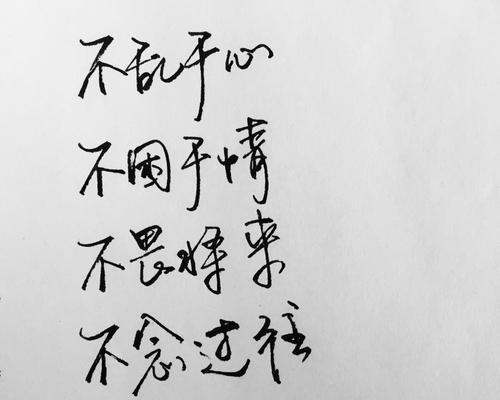 不乱于心
不困于情
不畏将来
不念过往